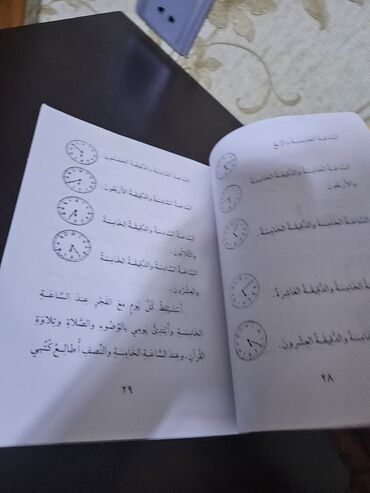 السَّاعَةُ الخَامِسَةُ وَالرُّبع
السَّاعَةُ الخَامِسَةُ وَالدَّقِيقَةُ الخَامِسَةُ
وَالأَرْبَعُونَ.
السَّاعَةُ الخَامِسَةُ وَالدَّقِيقَةُ الخَامِسَةُ.
الخَامِسَةُ وَالدَّقِيقَةُ العَاشِرَةُ.
الخَامِسَةُ وَالدَّقِيقَةُ العِشْرُونَ.
٢٨
السَّاعَةُ وَالدَّقِيقَةُ الخَمْسُونَ.
السَّاعَةُ وَالدَّقِيقَةُ الأَرْبَعُونَ.
السَّاعَةُ وَالدَّقِيقَةُ الخَامِسَةُ
وَالثَّلَاثُونَ.
السَّاعَةُ وَالدَّقِيقَةُ الخَامِسَةُ
وَالعِشْرُونَ.
أَسْتَيْقِظُ كُلَّ يَوْمٍ مَعَ الفَجْرِ عِنْدَ السَّاعَةِ
الخَامِسَةِ وَأَبْتَدِئُ يَوْمِي بِالوُضُوءِ وَالصَّلَاةِ وَتِلَاوَةِ
القُرْآنِ، وَعِنْدَ السَّاعَةِ الخَامِسَةِ وَالنِّصْفِ أُطَالِعُ كُتُبِي
٢٩